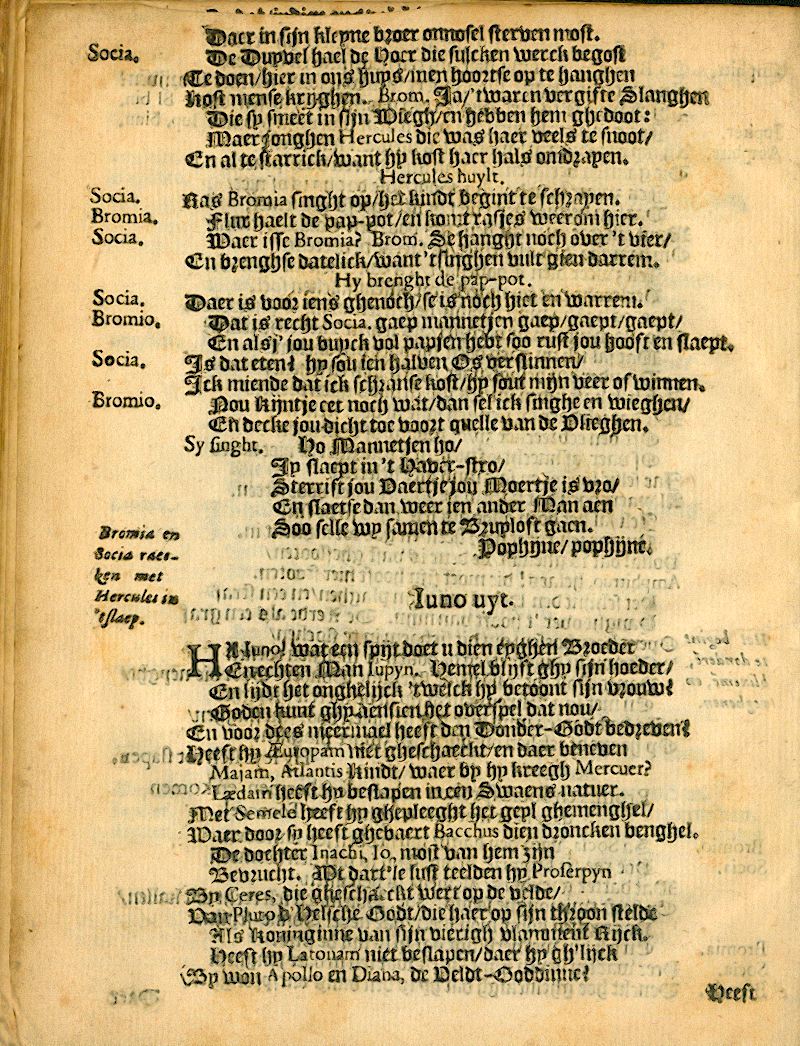 Daer in sijn kleyne broer onnosel sterven most.
Socia. De Duyvel hael de Hoer die sulcken werck begost
Te doen/hier in ons huys/men hoortse op te hanghen
Kost mense krijghen. Brom. Ja/'t waren vergifte Slanghen
Die sy smeet in sijn Wiegh/en hebben hem ghedoot:
Maer jonghen Hercules die was haer veels te snoot/
En al te starrick/want hy kost haer hals omdrayen.
Hercules huylt.
Socia. Ras Bromia singht op/het kindt begint te schrayen.
Bromia. Flux haelt de pap-pot/en komt rasjes weerom hier.
Socia. Waer isse Bromia? Brom. Se hanght noch over 't vier/
En brenghse datelick/want 't singhen vult gien darrem.
Hy brenght de pap-pot.
Socia. Daer is voor iens ghenoch/se is noch hiet en warrem.
Bromio. Dat is recht Socia. gaep mannetjen gaep/gaept/gaept/
En als j' jou buyck vol papjen hebt soo rust jou hooft en slaept.
Socia. Is dat eten? hy sou ien halven Os verslinnen/
Ick miende dat ick schranse kost/hy sout mijn veer of winnen.
Bromio. Nou Kijntje eet noch wat/dan sel ick singhe en wieghen/
En decke jou dicht toe voort quelle van de Vlieghen.
Sy singht. Ho Mannetjen ho/
Jy slaept in 't Haver-stro/
Sterrift jou Vaertje jou Moertje is vro/
En slaetse dan weer ien ander Man aen
Soo selle wy samen te Bruyloft gaen.
Pophijne/pophijne.
Bromia en
Socia raec-
ken met
Hercules in
't slaep.
Iuno uyt.
HA Juno! wat een spijt doet u dien eyghen Broeder
En echten Man Iupyn. Hemel blijft ghy sijn hoeder/
En lijdt het onghelijck 'twelck hy betoont sijn vrouw?
Goden kunt ghy aensien het overspel dat nou/
En voor dees meermael heeft den Donder-Godt bedreven?
Heeft hy Æuropam niet gheschaeckt/en daer beneven
Majam, Atlantis Kindt/waer by hy kreegh Mercuer?
Lædam heeft hy beslapen in een Swaens natuer.
Met Semele heeft hy ghepleeght het geyl ghemenghel/
Waer door sy heeft ghebaert Bacchus dien droncken benghel.
De dochter Inachi, Io, most van hem zijn
Bevrucht. Uyt dart'le lust teelden hy Proserpyn
By Ceres, die gheschaeckt wert op de velde/
Van Pluto d' Helsche Godt/die haer op sijn throon stelde
Als Koninginne van sijn vierigh vlamment Rijck.
Heeft hy Latonam niet beslapen/daer hy gh'lijck
By won Apollo en Diana, de Veldt-Goddinne?
Heeft